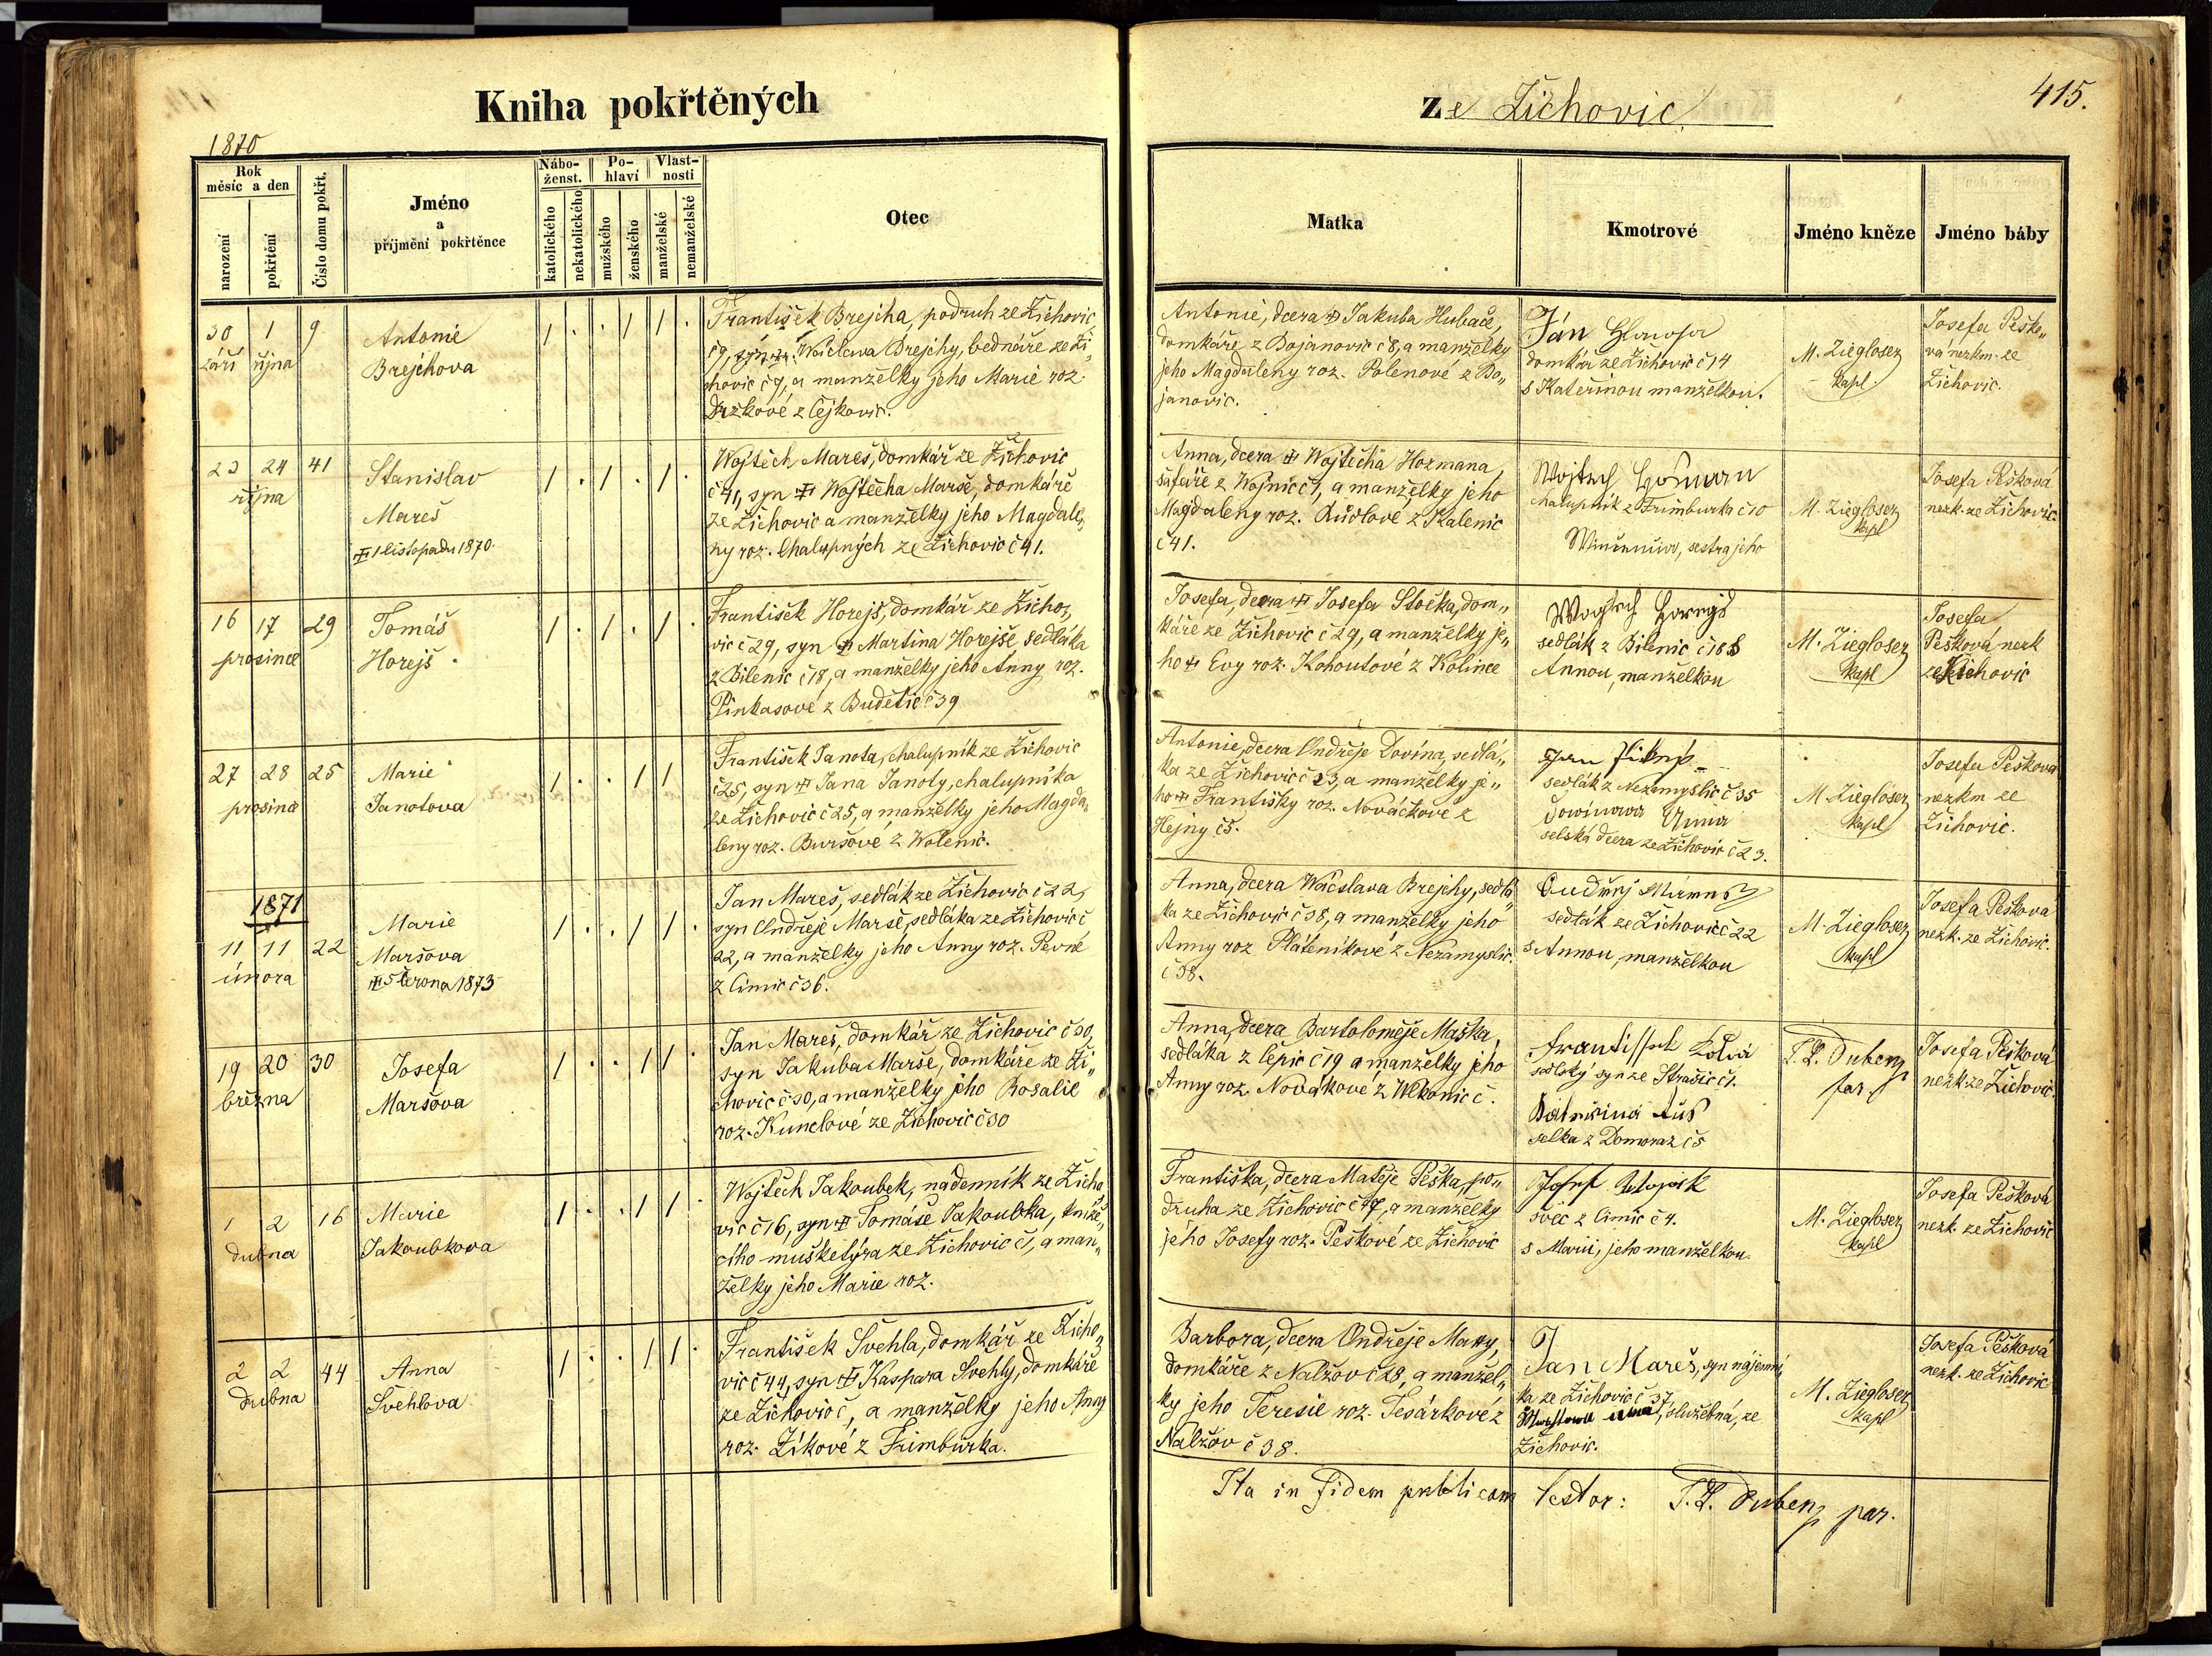 Kniha pokřtěných
ze Žichovic
415.
1870
Rok
měsíc a den
narození
pokřtění
Číslo domu pokřt.
Jméno
a
příjmění pokřtěnce
Nábo-
ženst.
katolického
nekatolického
Po-
hlaví
mužského
ženského
Vlast-
nosti
manželské
nemanželské
Otec
Matka
Kmotrové
Jméno kněze
Jméno báby
30 1 9
září října
Antonie
Brejchova
1 . . 1 1 .
František Brejcha, podruh ze Žichovic
č 9, syn Wáclava Brejchy, bednáře ze Ži„
chovic č 7, a manželky jeho Marie roz.
Držkové z Čejkovic.
Antonie, dcera † Jakuba Hubače,
domkáře z Bojanovic č 8, a manželky
jeho Magdaleny roz. Polenové z Bo„
janovic.
Ján
domkář ze Žichovic č 14
s Kateřinou manželkou.
M. Zieglosez
kapl
Josefa Peško„
vá nezkm. ze
Žichovic.
23 24 41
října
Stanislav
Mareš
† 1 listopadu 1870.
1 . 1 . 1 .
Wojtěch Mareš, domkář ze Žichovic
č 41, syn † Wojtěcha Marše, domkáře
ze Žichovic a manželky jeho Magdale„
ny roz. Chalupných ze Žichovic č 41.
Anna, dcera † Wojtěcha Hozmana,
šafáře z Wojnic č 1, a manželky jeho
Magdaleny roz. Růdlové z Kalenic
č 41.
Wojtěch
chalupník z Frimburka č 10
sestra jeho
M. Zieglosez
kapl
Josefa Pešková
nezk. ze Žichovic.
16 17 29
prosince
Tomáš
Horejš
1 . 1 . 1 .
František Horejš, domkář ze Žicho„
vic č 29, syn † Martina Horejše, sedláka
z Bilenic č 18, a manželky jeho Anny roz.
Pinkasové z Budětic č 39
Josefa, dcera † Josefa Stočka, dom„
káře ze Žichovic č 29, a manželky je„
ho † Evy roz. Kohoutové z Kolince
Wojtěch Horejš
sedlák z Bilenic č 18 s
Annou, manželkou
M. Zieglosez
kapl
Josefa
Pešková nezk
ze Žichovic
27 28 25
prosince
Marie
Janotova
1 . . 1 1
František Janota, chalupník ze Žichovic
č 25, syn † Jana Janoty, chalupníka
ze Žichovic č 25, a manželky jeho Magda„
leny roz. Buršové z Wolenic.
Antonie, dcera Ondřeje Dovína, sedlá„
ka ze Žichovic č 23, a manželky je„
ho † Františky roz. Nováčkové z
Hejny č 5.
Jan
sedlák z Nezamyslic č 35
Dowinowa Anna
selská dcera ze Žichovic č 23.
M. Zieglosez
kapl
Josefa Peškova
nezkm ze
Žichovic.
1871
11 11 22
února
Marie
Maršova
† 5 června 1873
1 . . 1 1 .
Jan Mareš, sedlák ze Žichovic č 22,
syn Ondřeje Marše, sedláka ze Žichovic č
22, a manželky jeho Anny roz. Pevné
z Čimic č 36.
Anna, dcera Wácslava Brejchy, sedlá„
ka ze Žichovic č 38, a manželky jeho
Anny roz Pláteníkové z Nezamyslic.
č 38.
Ondřej
sedlák ze Žichovic č 22
s Annou, manželkou
M. Zieglosez
kapl
Josefa Peškova
nezk. ze Žichovic.
19 20 30
března
Josefa
Maršova
1 . . 1 1 .
Jan Mareš, domkář ze Žichovic č 30,
syn Jakuba Marše, domkáře ze Ži„
chovic č 30, a manželky jeho Rosalie
roz. Kunclové ze Žichovic č 30
Anna, dcera Bartoloměje Maška,
sedláka z Čepic č 19 a manželky jeho
Anny roz. Novákové z Wlkonic č.
selský syn ze Strašic č 1.
selka z Domoraz č 5
F. L. Dubenz
far.
Josefa Pešková
nezk. ze Žichovic.
1 2 16
dubna
Marie
Jakoubkova
1 . . 1 1 .
Wojtěch Jakoubek, nádenník ze Žicho
vic č 16, syn † Tomáše Jakoubka, kníže„
cího mušketýra ze Žichovic č 1, a man„
želky jeho Marie roz.
Františka, dcera Matěje Peška, po„
druha ze Žichovic č 47, a manželky
jeho Josefy roz. Peškové ze Žichovic
Josef
švec z Čimic č 4.
s Marií, jeho manželkou.
M. Zieglosez
kapl
Josefa Pešková
nezk. ze Žichovic
2 2 44
dubna
Anna
Švehlova
1 . . 1 1 .
František Švehla, domkář ze Žicho„
vic č 44, syn † Kašpara Švehly, domkáře
ze Žichovic č , a manželky jeho Anny
roz. Zíkové z Frimburka.
Barbora, dcera Ondřeje Maxy,
domkáře z Nalžov č 28, a manžel„
ky jeho Teresie roz. Tesárkové z
Nalžov č 38.
Jan Mareš, syn nájemní„
ka ze Žichovic č 37,
služebná, ze
Žichovic.
M. Zieglosez
kapl
Josefa Pešková
nezk. ze Žichovic
Ita in fidem publicam testor: F. L. Dubenz par.